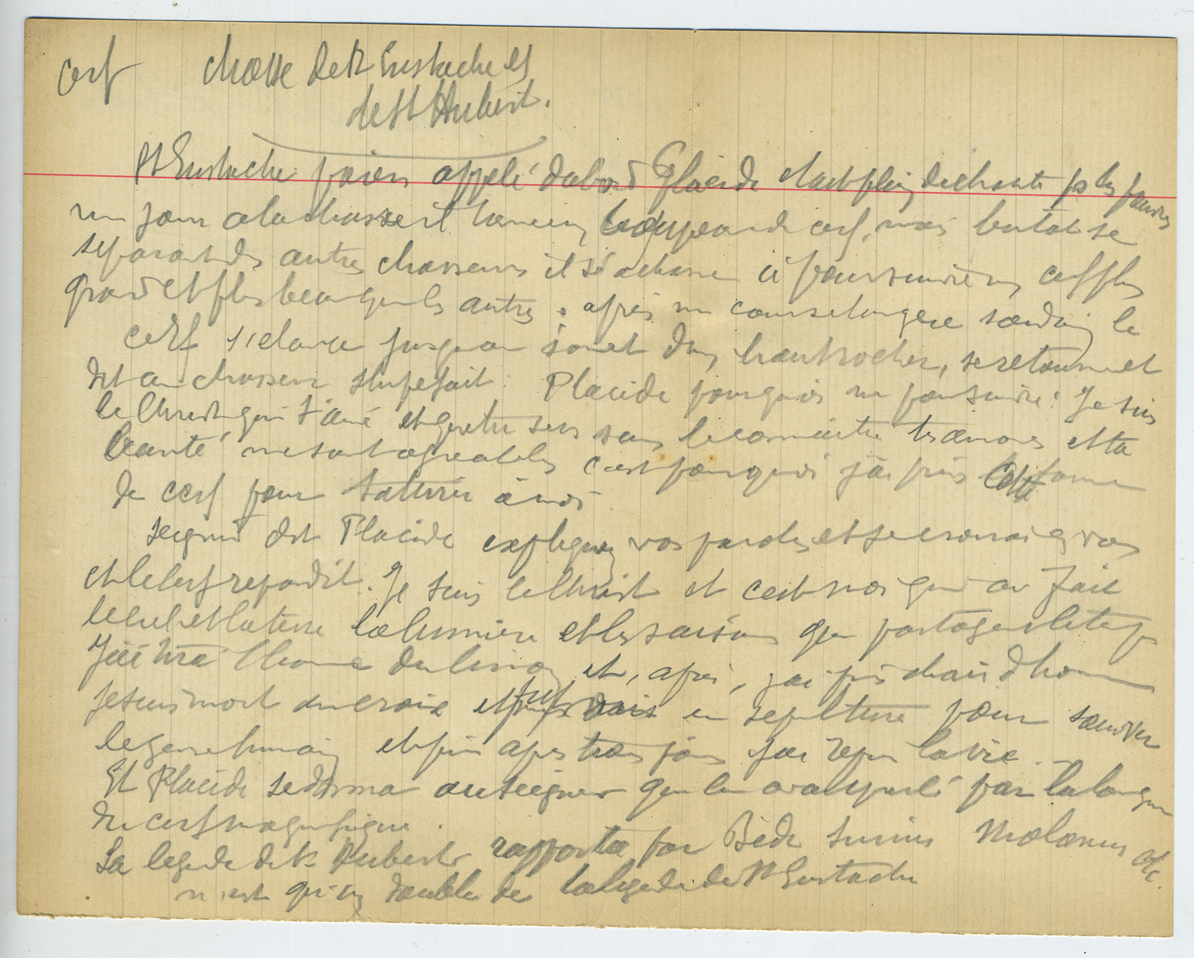 cerf chasse de St Eustache et
de St Hubert.
St Eustache païen appelé d'abord Placide était plein de charité pr les pauvres
un jour à la chasse il lança un troupeau de cerf, mais bientôt se
séparant des autres chasseurs il s'acharne à poursuivre un cerf plus
grand et plus beau que les autres. après une course longue soudain le
cerf s'élance jusqu'au sommet d'un haut rocher, se retourne et
dit au chasseur stupéfait : Placide pourquoi me poursuivre ? Je suis
le Christ que t'aime et que tu sers sans le connaître tes aumônes et ta
bonté me sont agréables c'est pourquoi j'ai pris cette forme
de cerf pour t'attirer à moi
Seigneur dit Placide expliquez vos paroles et je croirai en vous
et le cerf répondit. Je suis le Christ et c'est moi qui ai fait
le ciel et la terre la lumière et les saisons qui partagent le temps
J'ai tiré l'homme du limon et, après, j'ai pris chair d'homme
Je suis mort en croix et fus mis en sépulture pour sauver
le genre humain et puis après trois jours j'ai repris la vie.
Et Placide se donna au Seigneur qui lui avait parlé par la langue
du cerf magnifique.
La légende de St Hubert rapportée par Bède Surius Molanus etc.
n'est qu'un double de la légende de St Eustache